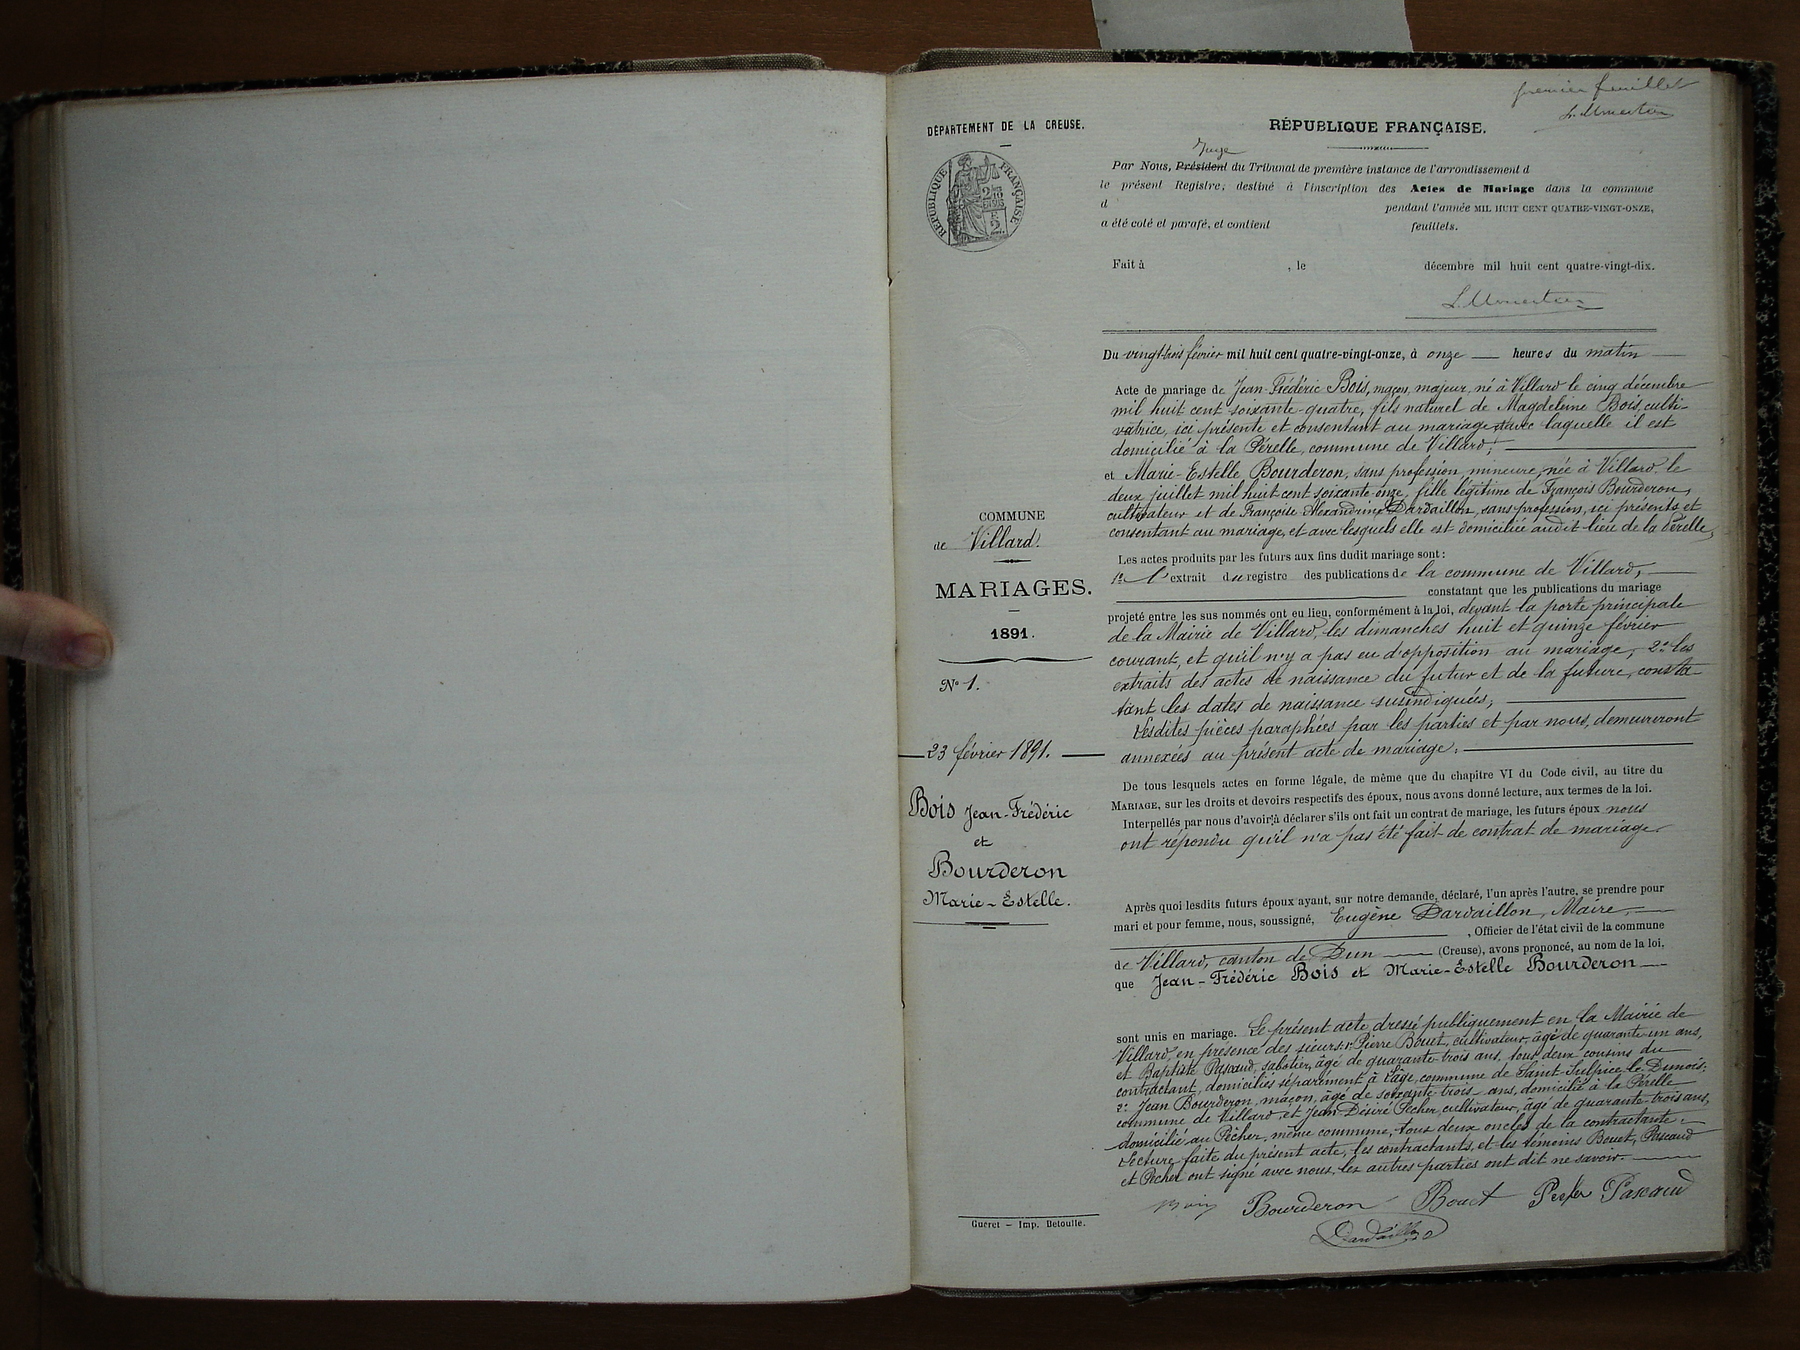 premier feuillet
DÉPARTEMENT DE LA CREUSE.
RÉPUBLIQUE FRANÇAISE.
Juge
Par Nous, Président du Tribunal de première instance de l'arrondissement d
le présent Registre, destiné à l'inscription des Actes de Mariage dans la commune
d pendant l'année MIL HUIT CENT QUATRE-VINGT-ONZE,
a été coté et parafé, et contient feuillets.
Fait à , le décembre mil huit cent quatre-vingt-dix.
RÉPUBLIQUE FRANÇAISE
Du vingt-trois février mil huit cent quatre-vingt-onze, à onze heures du matin
Acte de mariage de Jean-Frédéric Bois, maçon, majeur, né à Villard le cinq décembre
mil huit cent soixante-quatre, fils naturel de Magdeleine Bois, culti-
vatrice, ici présente et consentant au mariage, avec laquelle il est
domicilié à la Pérelle, commune de Villard;
et Marie-Estelle Bourderon, sans profession, mineure, née à Villard le
deux juillet mil huit cent soixante-onze, fille légitime de François Bourderon,
cultivateur et de Françoise Alexandrine Dardaillon, sans profession, ici présents et
consentant au mariage, et avec lesquels elle est domiciliée audit lieu de la Pérelle,
Les actes produits par les futurs aux fins dudit mariage sont :
1° L'extrait du registre des publications de la commune de Villard,
constatant que les publications du mariage
projeté entre les sus nommés ont eu lieu, conformément à la loi, devant la porte principale
de la Mairie de Villard, les dimanches huit et quinze février
courant, et qu'il n'y a pas eu d'opposition au mariage; 2° les
extraits des actes de naissance du futur et de la future, consta-
tant les dates de naissance susindiquées;
Lesdites pièces paraphées par les parties et par nous, demeureront
annexées au présent acte de mariage.
De tous lesquels actes en forme légale, de même que du chapitre VI du Code civil, au titre du
MARIAGE, sur les droits et devoirs respectifs des époux, nous avons donné lecture, aux termes de la loi.
Interpellés par nous d'avoir à déclarer s'ils ont fait un contrat de mariage, les futurs époux nous
ont répondu qu'il n'a pas été fait de contrat de mariage.
Après quoi lesdits futurs époux ayant, sur notre demande, déclaré, l'un après l'autre, se prendre pour
mari et pour femme, nous, soussigné, Eugène Dardaillon, Maire,
, Officier de l'état civil de la commune
de Villard, canton de Dun (Creuse), avons prononcé, au nom de la loi,
que Jean-Frédéric Bois et Marie-Estelle Bourderon
sont unis en mariage. Le présent acte dressé publiquement en la Mairie de
Villard, en présence des sieurs: 1° Pierre Bouet, cultivateur, âgé de quarante-un ans,
et Baptiste Pascaud, sabotier, âgé de quarante-trois ans, tous deux cousins du
contractant, domiciliés séparément à l'âge, commune de Saint-Sulpice-le-Dunois;
2° Jean Bourderon, maçon, âgé de soixante-trois ans, domicilié à la Pérelle
commune de Villard et Jean Désiré Pécher, cultivateur, âgé de quarante-trois ans,
domicilié au Pécher, même commune, tous deux oncles de la contractante.
Lecture faite du présent acte, les contractants, et les témoins Bouet, Pascaud
et Pécher ont signé avec nous, les autres parties ont dit ne savoir.
Bois Bourderon Bouet Pecher Pascaud
Dardaillon
COMMUNE
de Villard.
MARIAGES.
1891.
N° 1.
23 février 1891.
Bois Jean-Frédéric
et
Bourderon
Marie-Estelle.
Guéret – Imp. Betoulle.